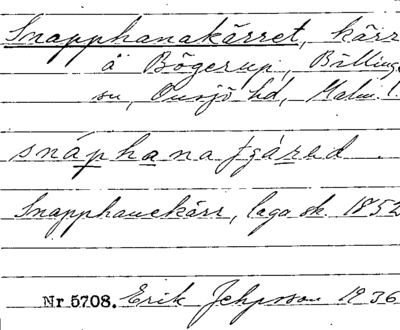 Snapphanakärret, kärr
å Bögerup, Bälling
su, Onsjö hd, Malm. l.
snáphana tzäred.
Snapphanekärr, laga sk. 1852
Nr 5708. Erik Jepsson 1936